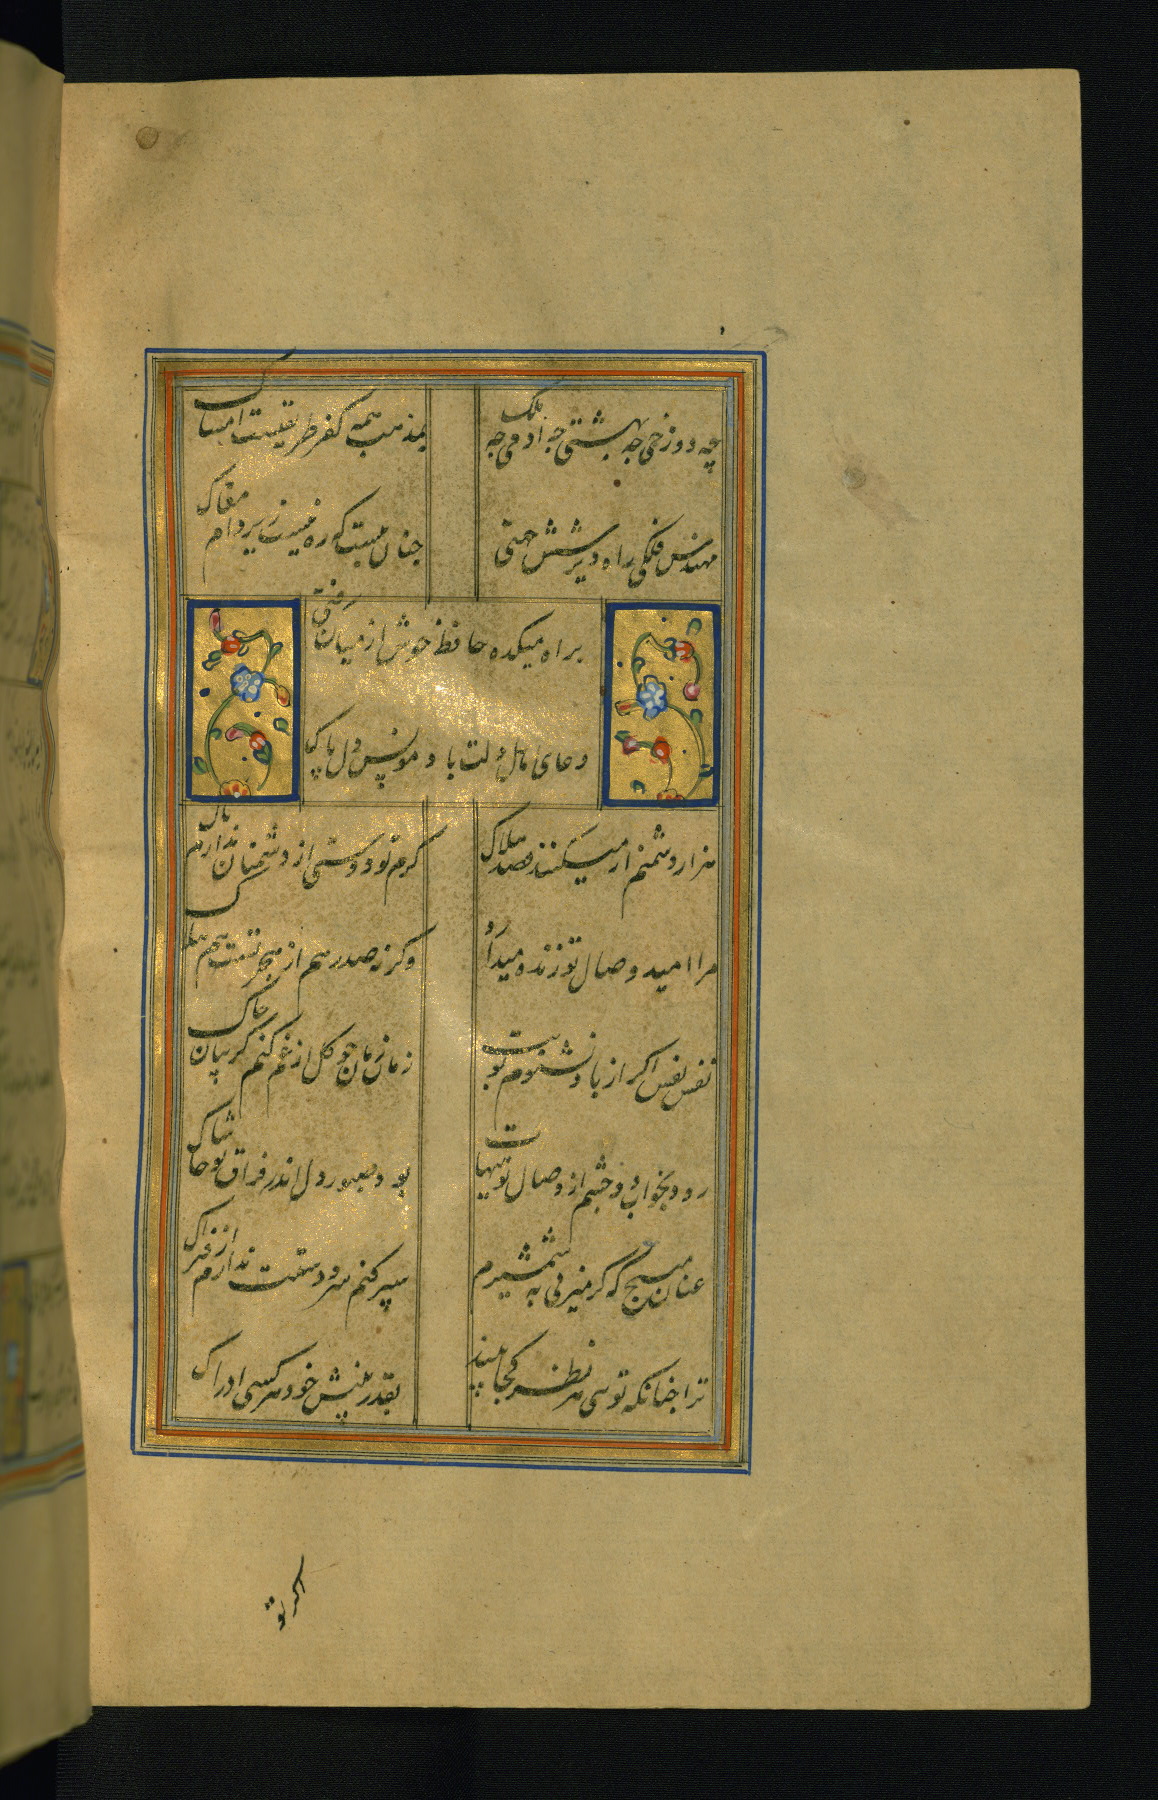 چه دوزخی چه بهشتی چه آدمی چه ملک
بمذهب همه کفر طریقتست امساک
مهندس فلکی راه دیر شش جهتی
چنان ببست که ره نیست زیر دام مغاک
براه میکده حافظ خوش از میان رفتی
دعای اهل دلت باد مونس دل پاک
هزار دشمنم ار میکنند قصد هلاک
کرم تو دوستی از دشمنان ندارم باک
مرا امید وصال تو زنده میدارد
وکرنه صد رهم از هجر تست هم هلاک
نفس نفس اکر از باد نشنوم بویت
زمان زمان چو کل از غم کنم کریبان چاک
رود بخواب دو چشم از وصال تو هیهات
بود صبور دل اندر فراق تو حاشاک
عنان مپیچ که کر میزنی به شمشیرم
سپر کنم سر و دستت ندارم از فتراک
ترا چنانکه تویی هر نظر کجا بیند
بقدر بینش خود هر کسی ادراک
اکر تو